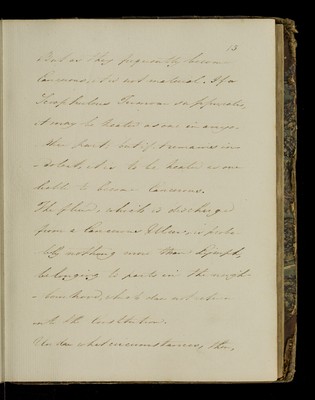 13
But as they frequently become
Cancerous, it is not material. If a
Scrophulous Tumour suppurates,
it may be treated as one in any
other part, but if it remains in-
dolent, it is to be treated as one
liable to become Cancerous.
The fluid, which is discharged
from a Cancerous Ulcer, is proba
bly nothing more than Lymph,
belonging to parts in the neigh-
bourhood, which does not return
into the Constitution.
Under what circumstances, then,